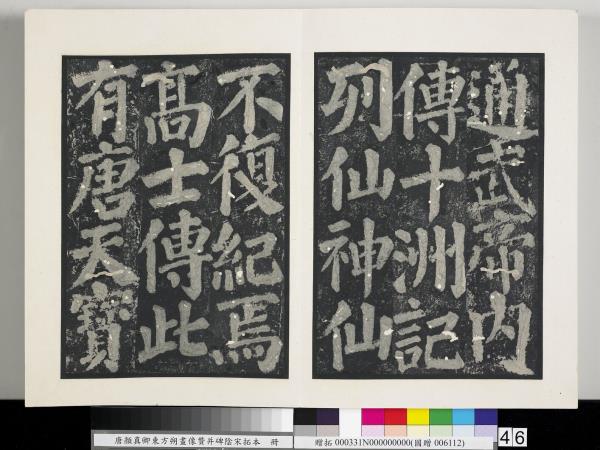 通武帝内
傳十洲記
列仙神仙
不復紀焉
髙士傳此
有唐天寶
唐顏真卿東方朔畫像贊并碑陰宋拓本 冊
贈拓 000331N000000000(國贈 006112)
46